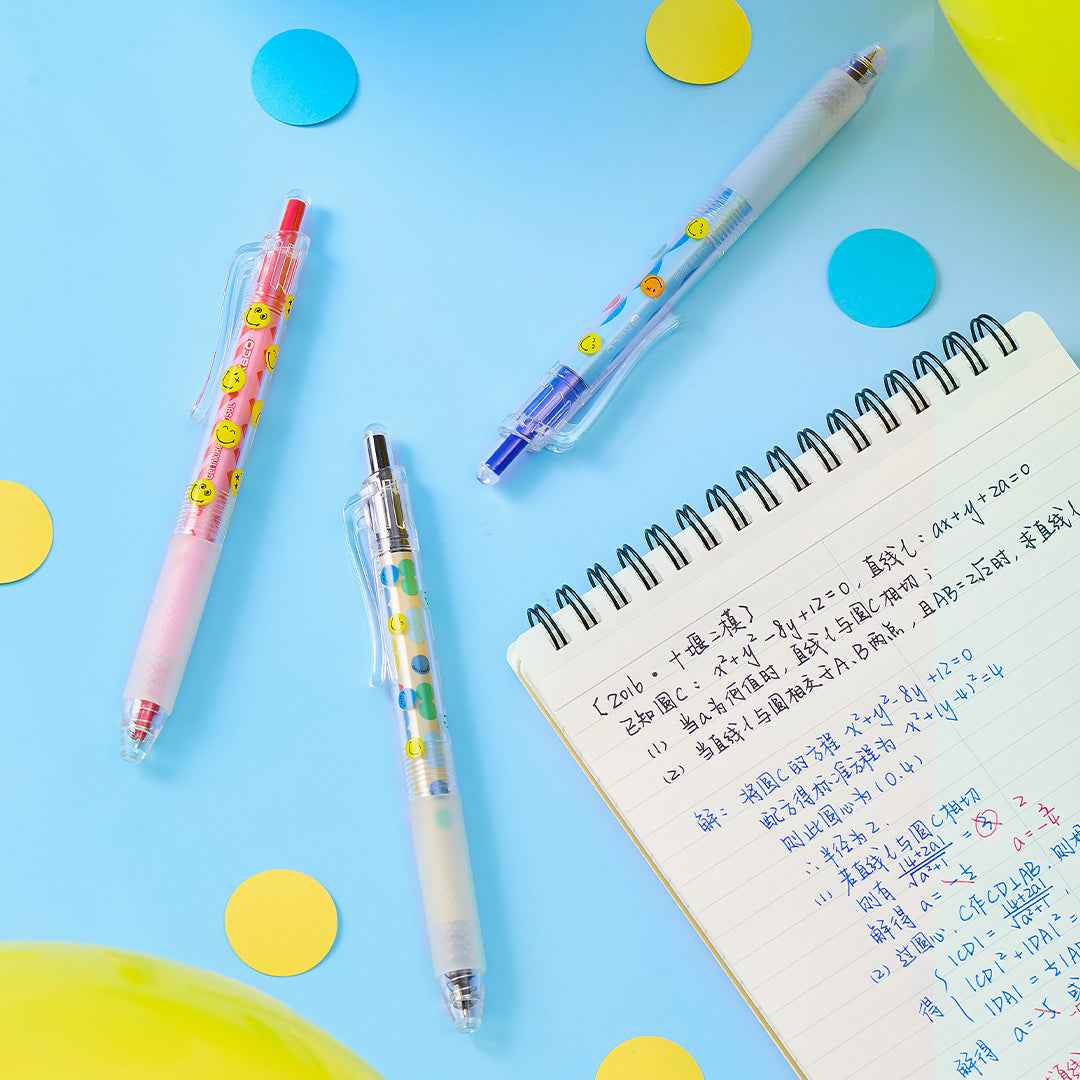 GET MORE
(2016·十堰二模)
已知圆C：x²+y²-8y+12=0，直线l：ax+y+2a=0
(1) 当a为何值时，直线l与圆C相切；
(2) 当直线l与圆相交于A、B两点，且AB=2√2时，求直线l
解：将圆C的方程 x²+y²-8y+12=0
配方得标准方程为 x²+(y-4)²=4
则此圆心为(0,4)
∴半径为2.
(1) 若直线l与圆C相切
则有 |4+2a|/√(a²+1) = 3 2
解得 a=-½ a=-¾
(2) 过圆心.C作CD⊥AB.则
得 { |CD| = |4+2a|/√(a²+1)，
|CD|²+|DA|²=
|DA|=½|A
解得 a=-
直线